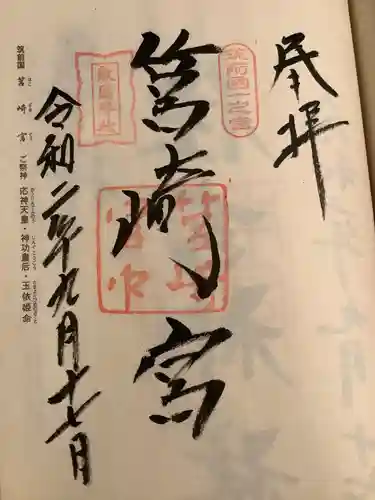 奉拝
筑前國一之宮
筥崎宮
敵國降伏
令和二年九月十七日
筑前国 筥崎宮 ご祭神 応神天皇・神功皇后・玉依姫命